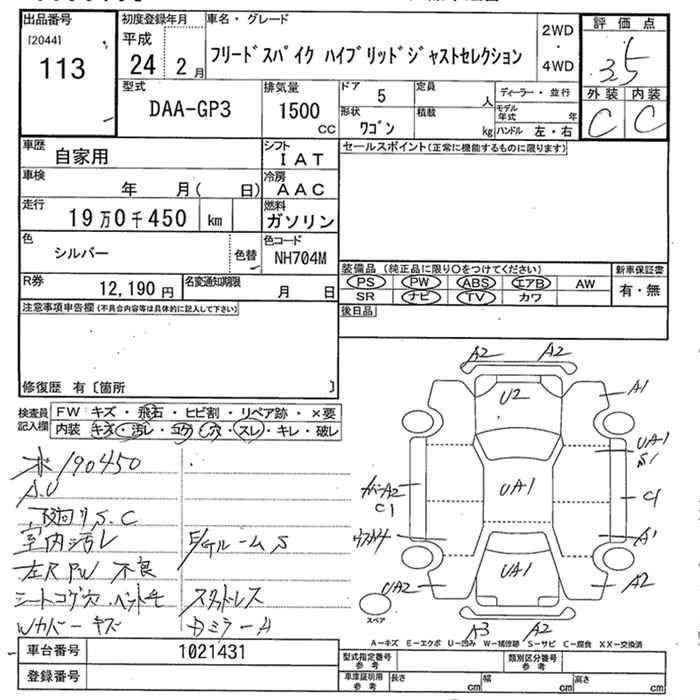 出品番号
[2044]
113
初度登録年月
平成
24 2 月
車名・グレード
フリードスパイク ハイブリッドジャストセレクション
2WD
・
4WD
評価点
3.5
外装 内装
C C
型式
DAA-GP3
排気量
1500
cc
ドア
5
定員
人
ディーラー・並行
形状
ワゴン
積載
kg
モデル
年式
年
ハンドル 左・右
車歴
自家用
シフト
IAT
セールスポイント(正常に機能するものに限ります)
車検
年 月( 日)
冷房
AAC
走行
19万0千450 km
燃料
ガソリン
色
シルバー
色替
色コード
NH704M
R券
12,190 円
名変通知期限
月 日
装備品 (純正品に限り○をつけてください)
新車保証書
PS PW ABS エアB AW
SR ナビ TV カワ
有・無
後日品
注意事項申告欄(不具合内容等は具体的に記入して下さい)
修復歴 有〔箇所 〕
検査員
記入欄
FW キズ・飛石・ヒビ割・リペア跡・×要
内装 キズ・汚レ・コゲ・穴・スレ・キレ・破レ
190450
A.U
下廻り S.C
室内汚レ
左R PW 不良
シートコゲ穴
Wカバーキズ
スタットレス
Dミラー A
A2 A2
U2
A1
UA1
S1
カバーA2
C1
UA1
C1
A1
UA2
UA1
A2
A3 A2
スペア
A-キズ E-エクボ U-凹み W-補修跡 S-サビ C-腐食 XX-交換済
車台番号
1021431
登録番号
型式指定番号
参考
類別区分番号
参考
車庫証明用
参考
長さ cm
幅 cm
高さ cm